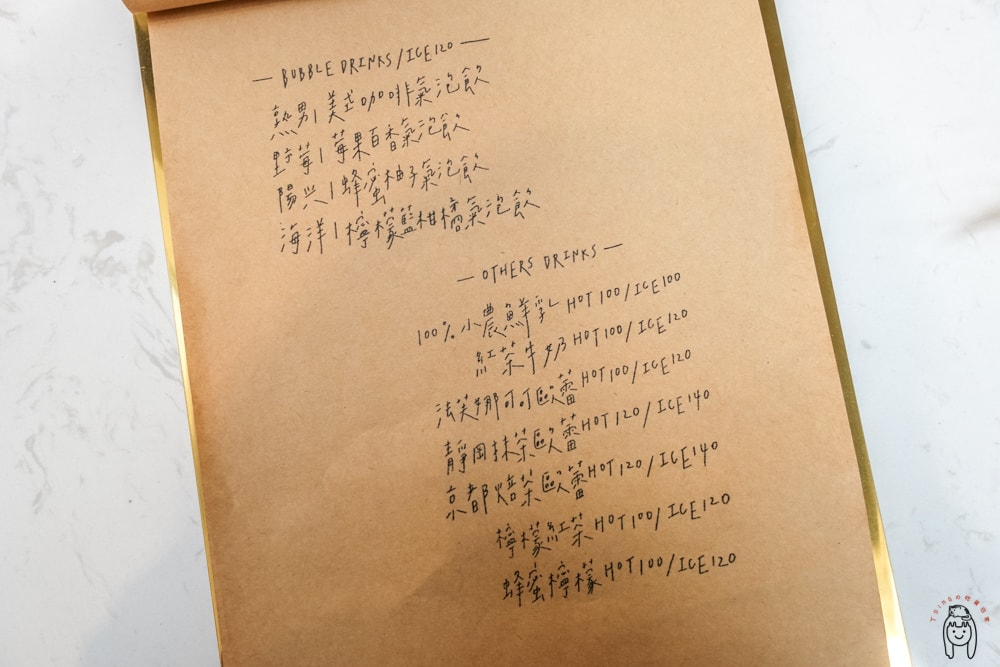 — BUBBLE DRINKS / ICE 120 —
熟男 | 美式咖啡氣泡飲
野莓 | 莓果百香氣泡飲
陽光 | 蜂蜜柚子氣泡飲
海洋 | 檸檬藍柑橘氣泡飲
— OTHERS DRINKS —
100% 小農鮮乳 HOT 100 / ICE 100
紅茶牛奶 HOT 100 / ICE 120
法芙娜可可歐蕾 HOT 100 / ICE 120
靜岡抹茶歐蕾 HOT 120 / ICE 140
京都焙茶歐蕾 HOT 120 / ICE 140
檸檬紅茶 HOT 100 / ICE 120
蜂蜜檸檬 HOT 100 / ICE 120